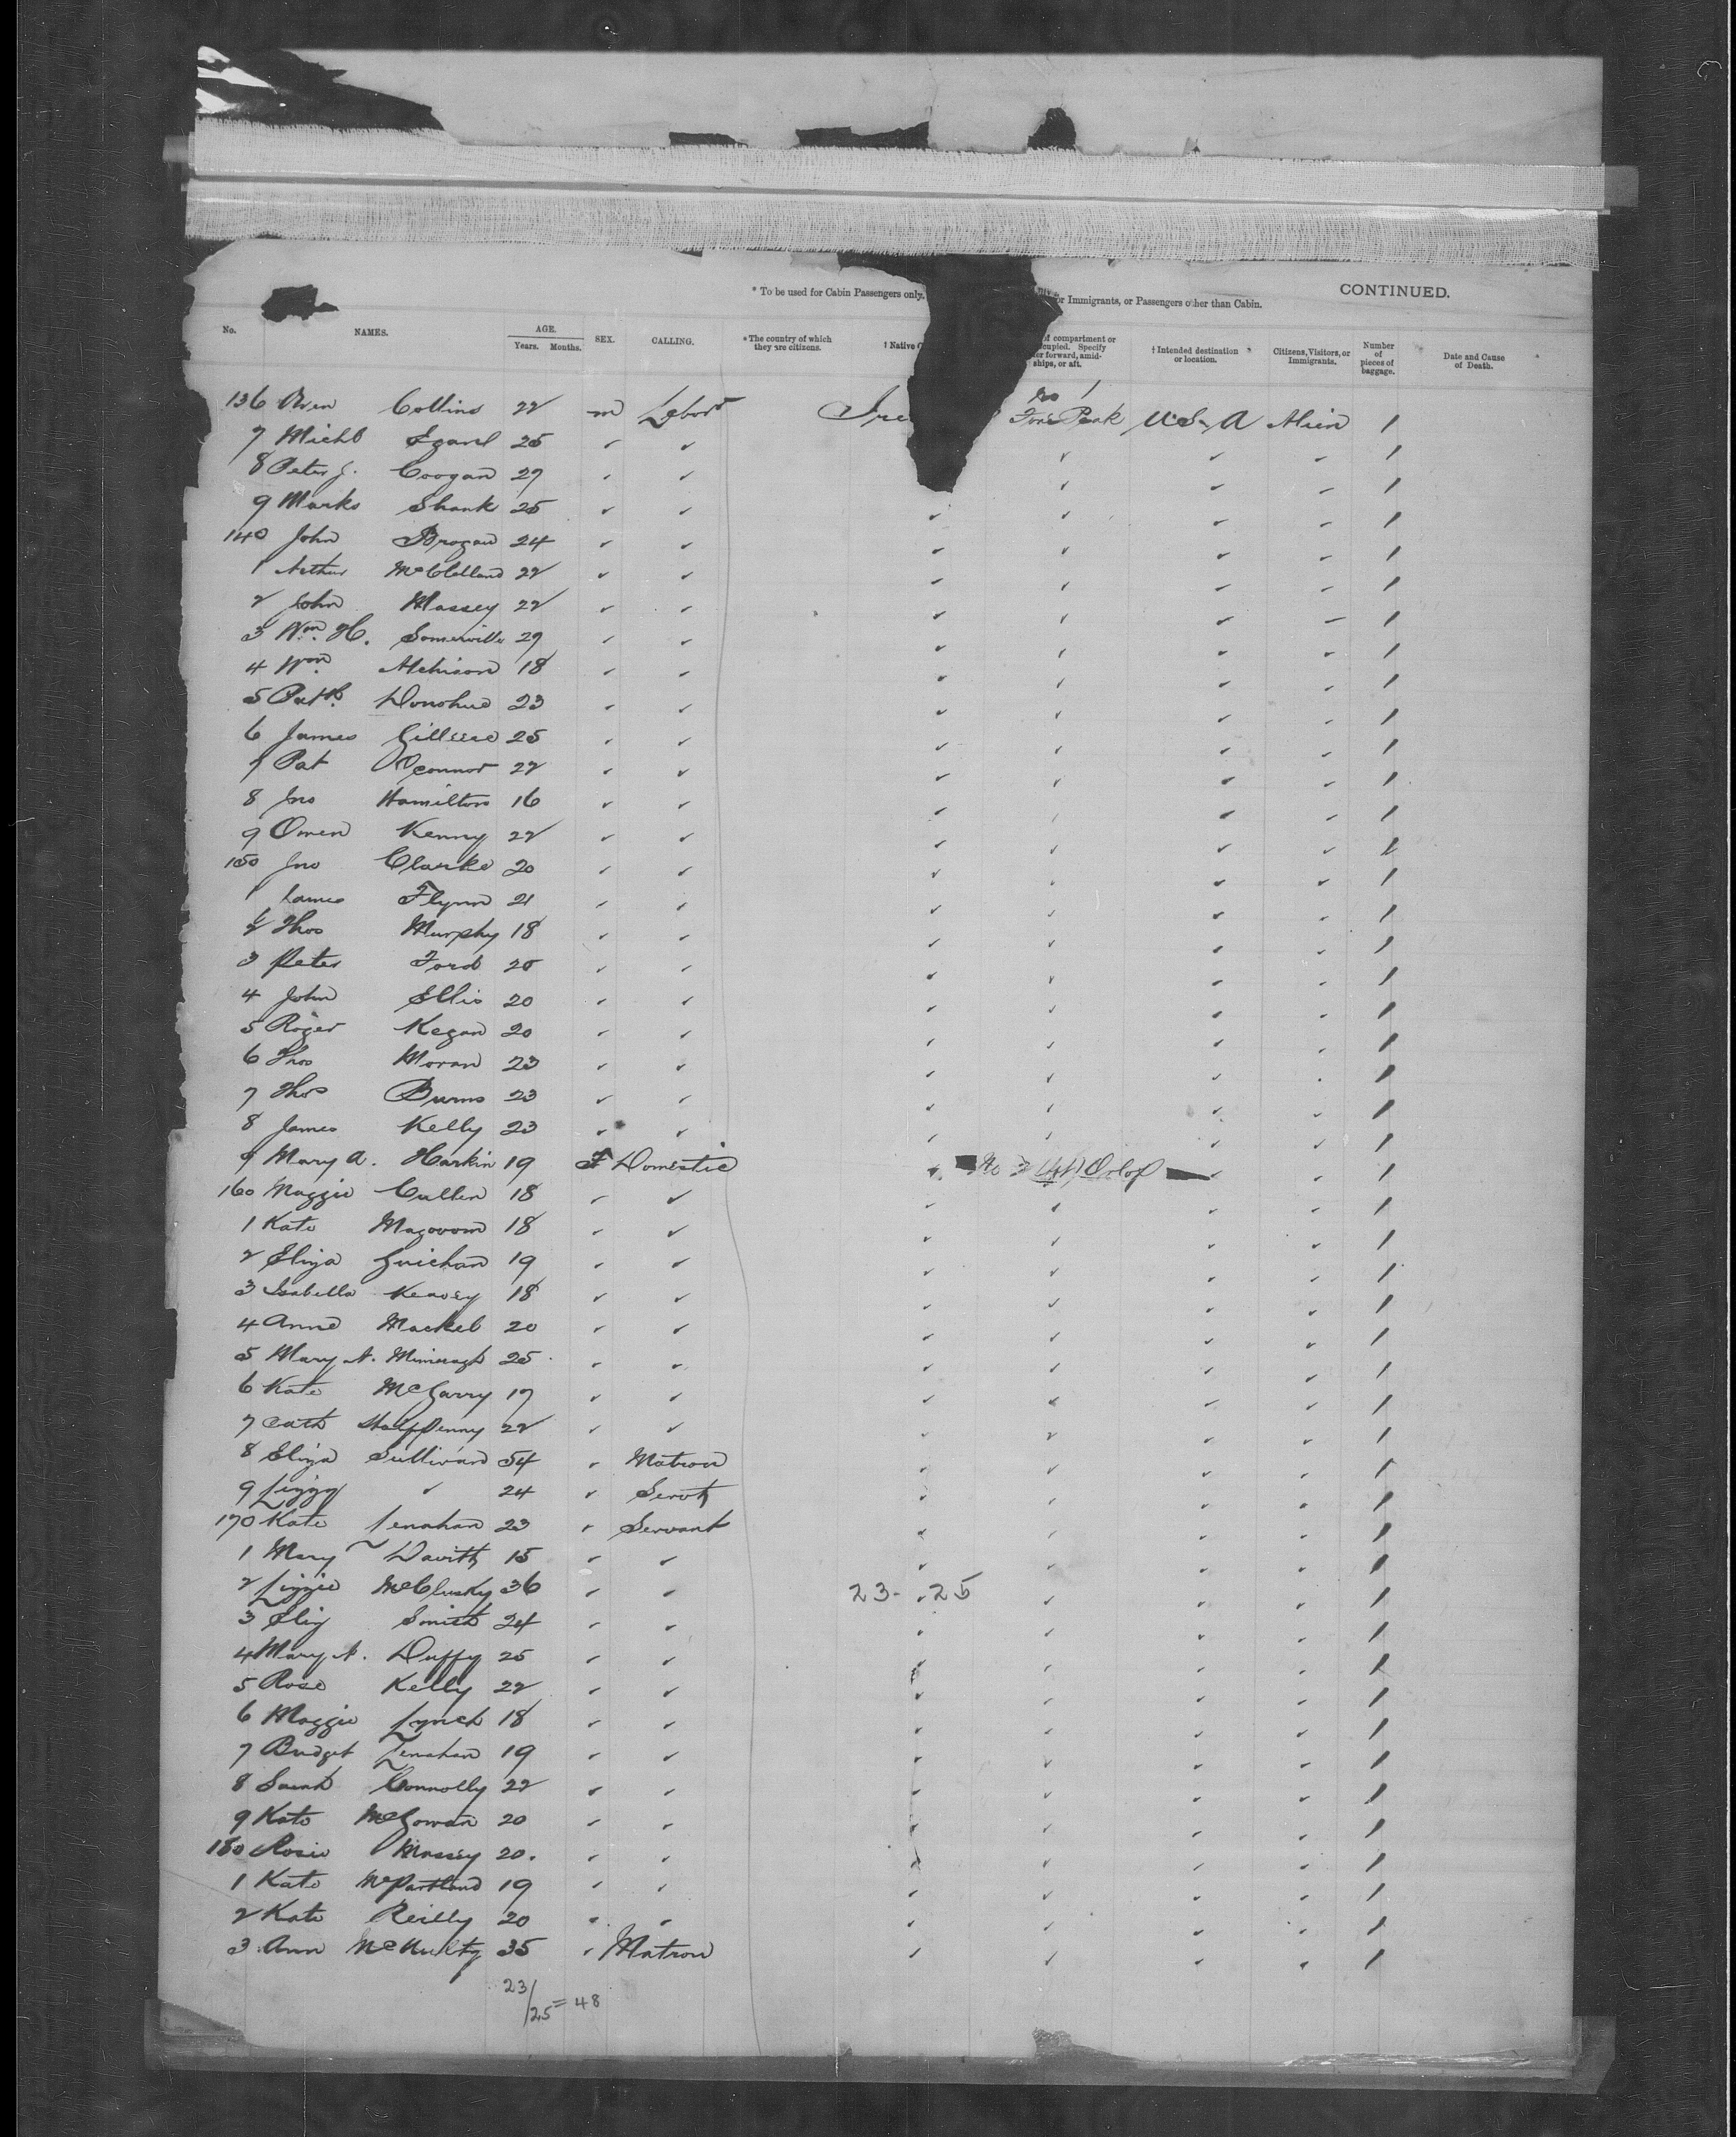 * To be used for Cabin Passengers only.
or Immigrants, or Passengers other than Cabin.
CONTINUED.
No. NAMES. AGE. Years. Months. SEX. CALLING. * The country of which they are citizens. † Native of compartment or occupied. Specify forward, amidships, or aft. † Intended destination or location. Citizens, Visitors, or Immigrants. Number of pieces of baggage. Date and Cause of Death.
No 1
136 Owen Collins 22 m Labor Ire Fore Peak U.S.A Alien 1
7 Michl Egan 25 ✓ ✓ ✓ ✓ - 1
8 Peter J. Coogan 27 ✓ ✓ ✓ ✓ - 1
9 Marks Shank 25 ✓ ✓ ✓ ✓ ✓ - 1
140 John Brogan 24 ✓ ✓ ✓ ✓ ✓ - 1
1 Arthur McClelland 22 ✓ ✓ ✓ ✓ - - 1
2 John Massey 22 ✓ ✓ ✓ ✓ ✓ - 1
3 Wm. H. Somerville 29 ✓ ✓ ✓ ✓ ✓ ✓ 1
4 Wm. Atchison 18 ✓ ✓ ✓ ✓ ✓ ✓ 1
5 Patk. Donohue 23 ✓ ✓ ✓ ✓ ✓ ✓ 1
6 James Gilleese 25 ✓ ✓ ✓ ✓ ✓ ✓ 1
7 Pat O'Connor 22 ✓ ✓ ✓ ✓ ✓ ✓ 1
8 Jno Hamilton 16 ✓ ✓ ✓ ✓ ✓ ✓ 1
9 Owen Kenny 22 ✓ ✓ ✓ ✓ ✓ ✓ 1
150 Jno Clarke 20 ✓ ✓ ✓ ✓ ✓ ✓ 1
1 James Flynn 21 ✓ ✓ ✓ ✓ ✓ ✓ 1
2 Thos Murphy 18 ✓ ✓ ✓ ✓ ✓ ✓ 1
3 Peter Ford 20 ✓ ✓ ✓ ✓ ✓ ✓ 1
4 John Ellis 20 ✓ ✓ ✓ ✓ ✓ ✓ 1
5 Roger Kegan 20 ✓ ✓ ✓ ✓ ✓ ✓ 1
6 Thos Moran 23 ✓ ✓ ✓ ✓ ✓ ✓ 1
7 Thos Burns 23 ✓ ✓ ✓ ✓ ✓ ✓ 1
8 James Kelly 23 ✓ ✓ ✓ ✓ ✓ ✓ 1
9 Mary A. Harkin 19 F Domestic ✓ No 3 Orlop ✓ ✓ 1
160 Maggie Cullen 18 ✓ ✓ ✓ ✓ ✓ ✓ 1
1 Kate Magovern 18 ✓ ✓ ✓ ✓ ✓ ✓ 1
2 Eliza Guichan 19 ✓ ✓ ✓ ✓ ✓ ✓ 1
3 Isabella Keavey 18 ✓ ✓ ✓ ✓ ✓ ✓ 1
4 Anne Mackel 20 ✓ ✓ ✓ ✓ ✓ ✓ 1
5 Mary A. 25 ✓ ✓ ✓ ✓ ✓ ✓ 1
6 Kate McGarry 17 ✓ ✓ ✓ ✓ ✓ ✓ 1
7 Cath Halfpenny 22 ✓ ✓ ✓ ✓ ✓ ✓ 1
8 Eliza Sullivan 54 ✓ Matron ✓ ✓ ✓ ✓ 1
9 Lizzy ✓ 24 ✓ Servt ✓ ✓ ✓ ✓ 1
170 Kate Lenahan 23 ✓ Servant ✓ ✓ ✓ ✓ 1
1 Mary Davitt 15 ✓ ✓ ✓ ✓ ✓ ✓ 1
2 Lizzie McClusky 36 ✓ ✓ 23 - ✓ 25 ✓ ✓ ✓ 1
3 Eliz Smith 24 ✓ ✓ ✓ ✓ ✓ ✓ 1
4 Mary A. Duffy 25 ✓ ✓ ✓ ✓ ✓ ✓ 1
5 Rose Kelly 22 ✓ ✓ ✓ ✓ ✓ ✓ 1
6 Maggie Lynch 18 ✓ ✓ ✓ ✓ ✓ ✓ 1
7 Bridget Lenahan 19 ✓ ✓ ✓ ✓ ✓ ✓ 1
8 Sarah Connolly 22 ✓ ✓ ✓ ✓ ✓ ✓ 1
9 Kate McGowan 20 ✓ ✓ ✓ ✓ ✓ ✓ 1
180 Rosie Massey 20. ✓ ✓ ✓ ✓ ✓ ✓ 1
1 Kate McPartland 19 ✓ ✓ ✓ ✓ ✓ ✓ 1
2 Kate Reilly 20 ✓ ✓ ✓ ✓ ✓ ✓ 1
3 Ann McNulty 35 ✓ Matron ✓ ✓ ✓ ✓ 1
23/25 = 48